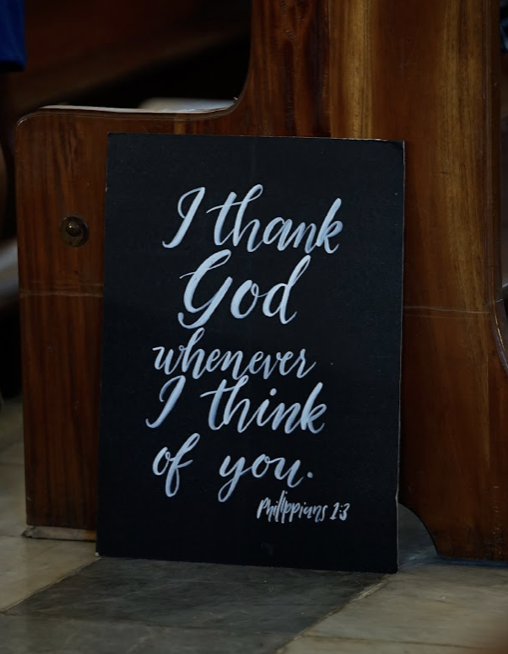 I thank
God
whenever
I think
of you.
Philippians 1:3